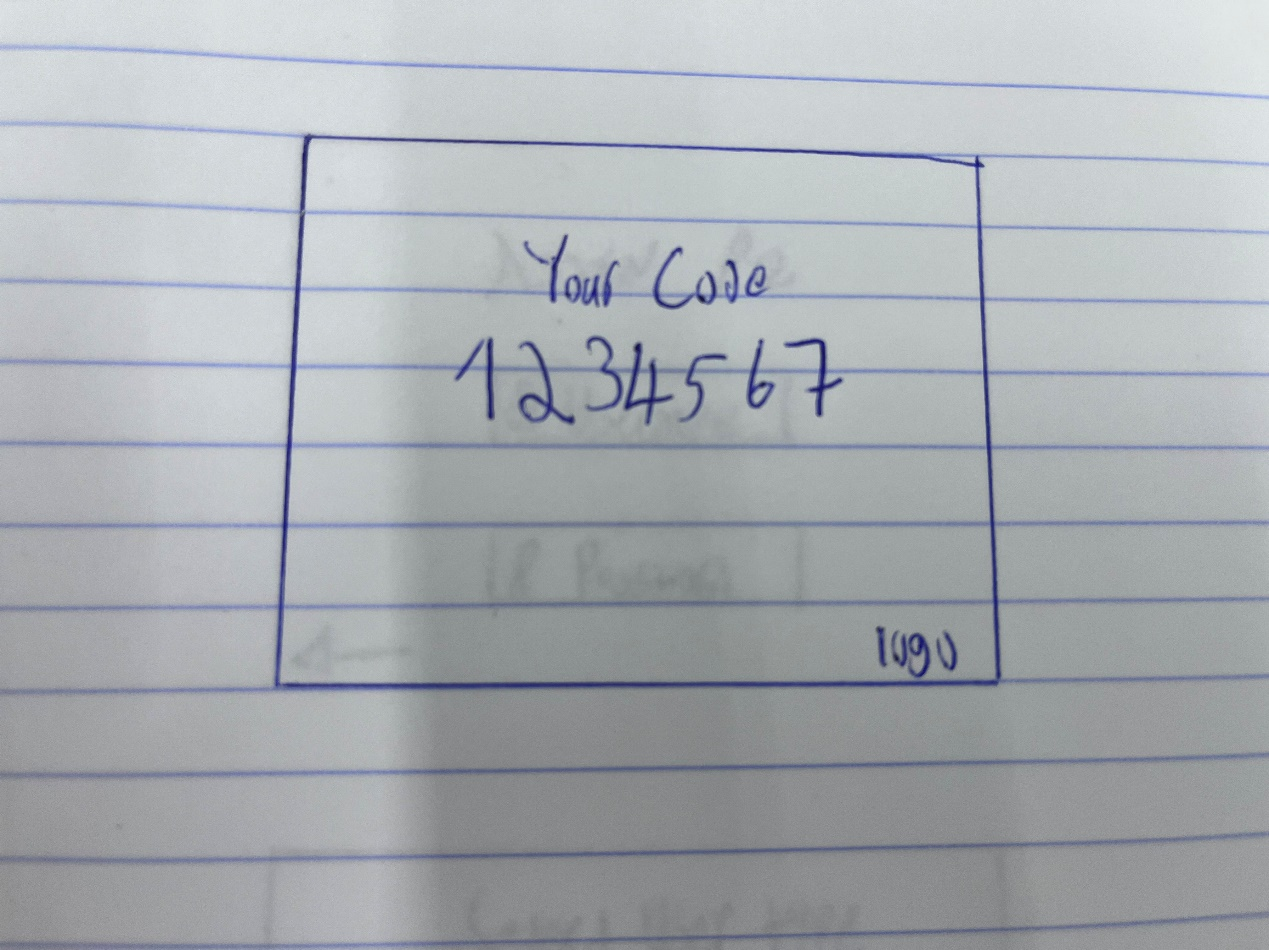 Your Code
1234567
logo